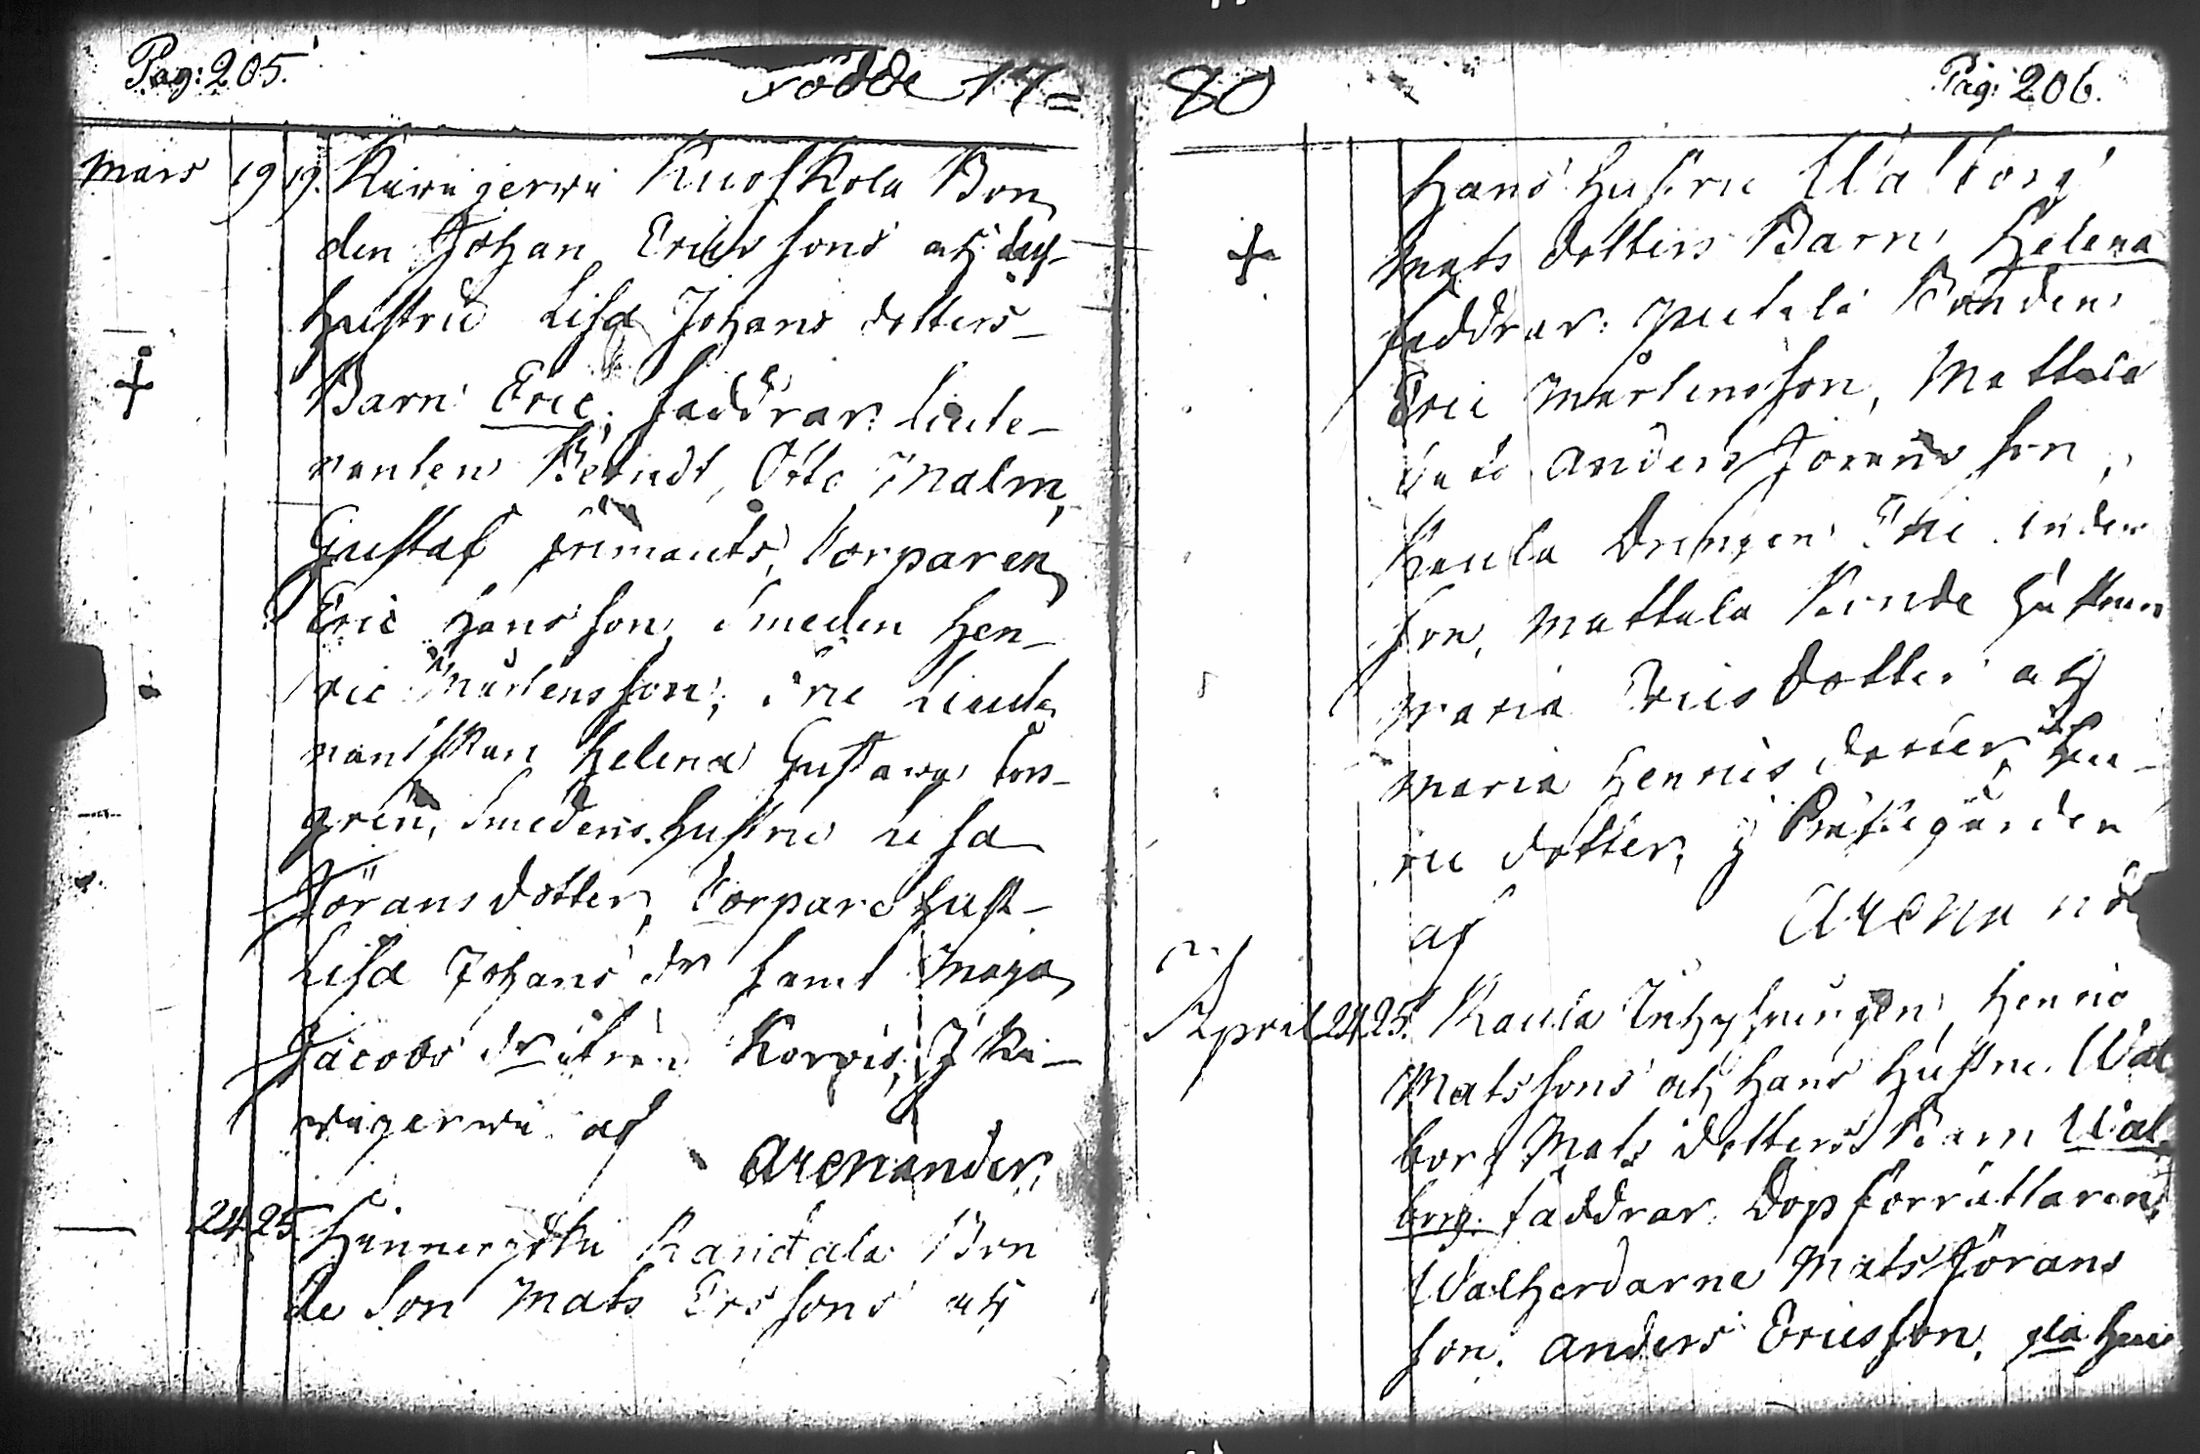 Pag: 205.
Födde 17=
Mars 19 19. Kiwijerwi Kuoskola Bon
den Johan Ericssons och des
Hustru Lisa Johans dotters
Barn Eric; faddrar: Lieute-
nanten Berndt Otto Malm,
Gustaf Torparen
Eric Hansson, Smeden Hen-
ric Mårtensson; Fru Lieute
nantskan Helena Gustawa
gren, Smedens Hustru Lisa
Jörans dotter, Torpare Hust-
Lisa Johans dr samt Maja
Jacobs dr ifrån Korpis, J Ki-
wijerwi af
Arenander,
24 25. Kandala Bon
de Son Mats Ers sons och
80
Pag: 206.
Hans Hustru Walborg
Mats dotters Barn Helena
faddrar: Bonden
Eric Mårtensson, Mattala
dito Anders Jöransson,
Kaula Drengen Eric Anders
son, Mattala Bonde Hustrun
Maria Erics dotter och
Maria Henrics dotter, Hen-
ric dotter, J Prästegården
af Arenand
April 24 25. Kaula Inhysningen Henric
Matssons och Hans Hustru Wal
borg Mats dotters Barn Wal
borg. faddrar: Dopförrättaren,
Walherdarne Mats Jörans
son, Anders Ericsson,